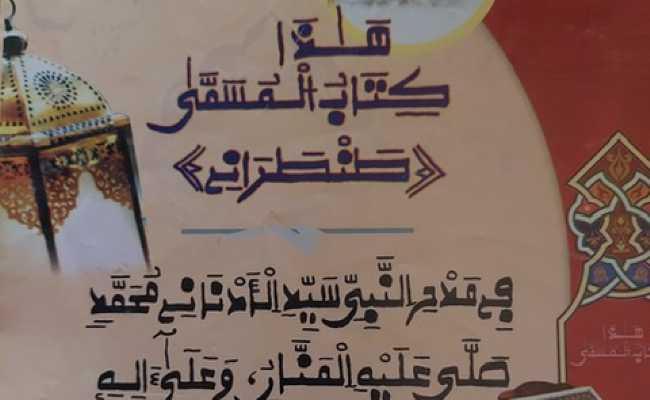 هَـٰذَا
كِتَابُ الْمُسَمَّى
«طَنْطَرَانِے»
فِے مَدْحِ النَّبِيِّ سَيِّدِ الْأَنَامِ مُحَمَّدٍ
صَلَّى عَلَيْهِ الْمَنَّانُ، وَعَلَىٰٓ ءَالِهِ
هذا
كتاب المسمى